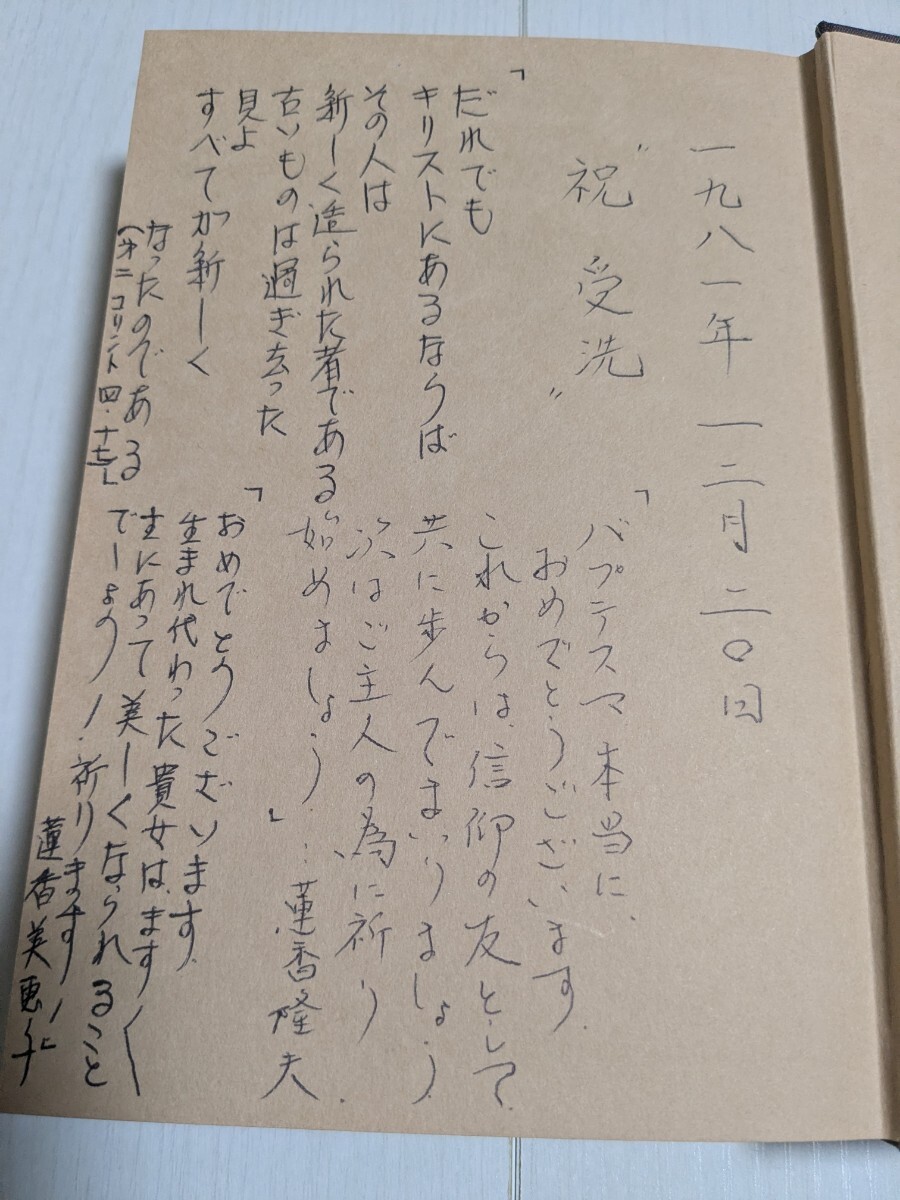 一九八一年 一二月 二〇日
〝祝 受洗〟
「だれでも
キリストにあるならば
その人は
新しく造られた者である
古いものは過ぎ去った
見よ
すべてが新しく
なったのである
(才二 コリント 四・十七)」
「バプテスマ本当に、
おめでとうございます.
これからは、信仰の友として
共に歩んでまいりましょう.
次はご主人の為に祈り
始めましょう.」… 蓮香隆夫.
「おめでとうございます.
生まれ代わった貴女は、ます〱
主にあって美しくなられること
でしょう！.祈ります！」
蓮香美恵子